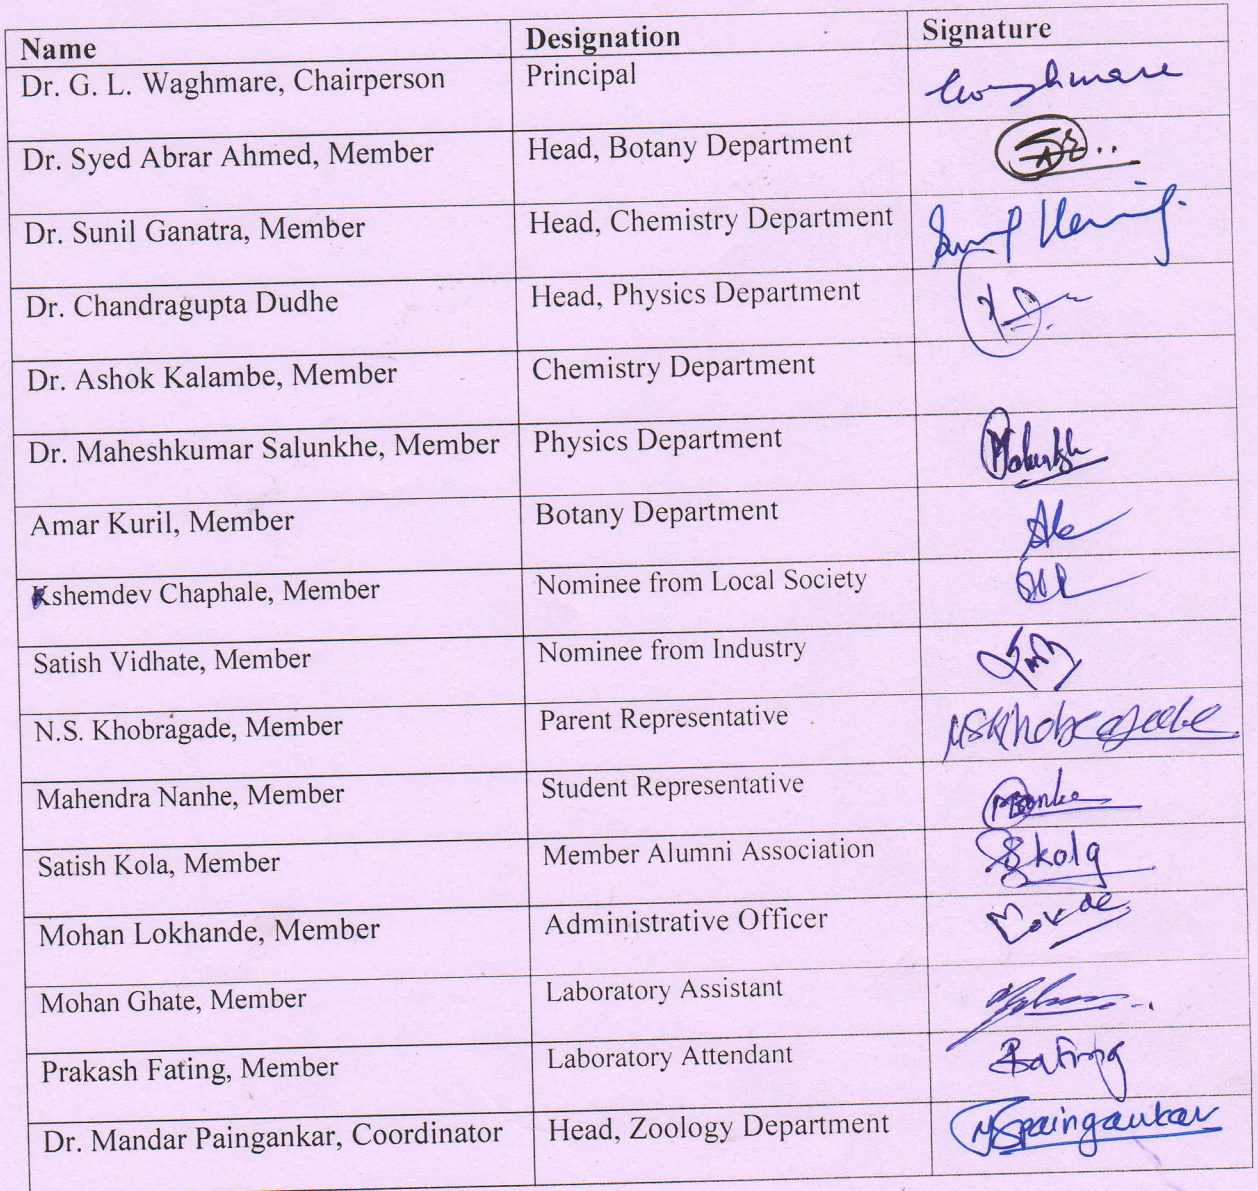 Name Designation Signature
Dr. G. L. Waghmare, Chairperson Principal
Dr. Syed Abrar Ahmed, Member Head, Botany Department
Dr. Sunil Ganatra, Member Head, Chemistry Department
Dr. Chandragupta Dudhe Head, Physics Department
Dr. Ashok Kalambe, Member Chemistry Department
Dr. Maheshkumar Salunkhe, Member Physics Department
Amar Kuril, Member Botany Department
Kshemdev Chaphale, Member Nominee from Local Society
Satish Vidhate, Member Nominee from Industry
N.S. Khobragade, Member Parent Representative NSKhobragade
Mahendra Nanhe, Member Student Representative
Satish Kola, Member Member Alumni Association Skola
Mohan Lokhande, Member Administrative Officer
Mohan Ghate, Member Laboratory Assistant
Prakash Fating, Member Laboratory Attendant
Dr. Mandar Paingankar, Coordinator Head, Zoology Department MSpaingankar